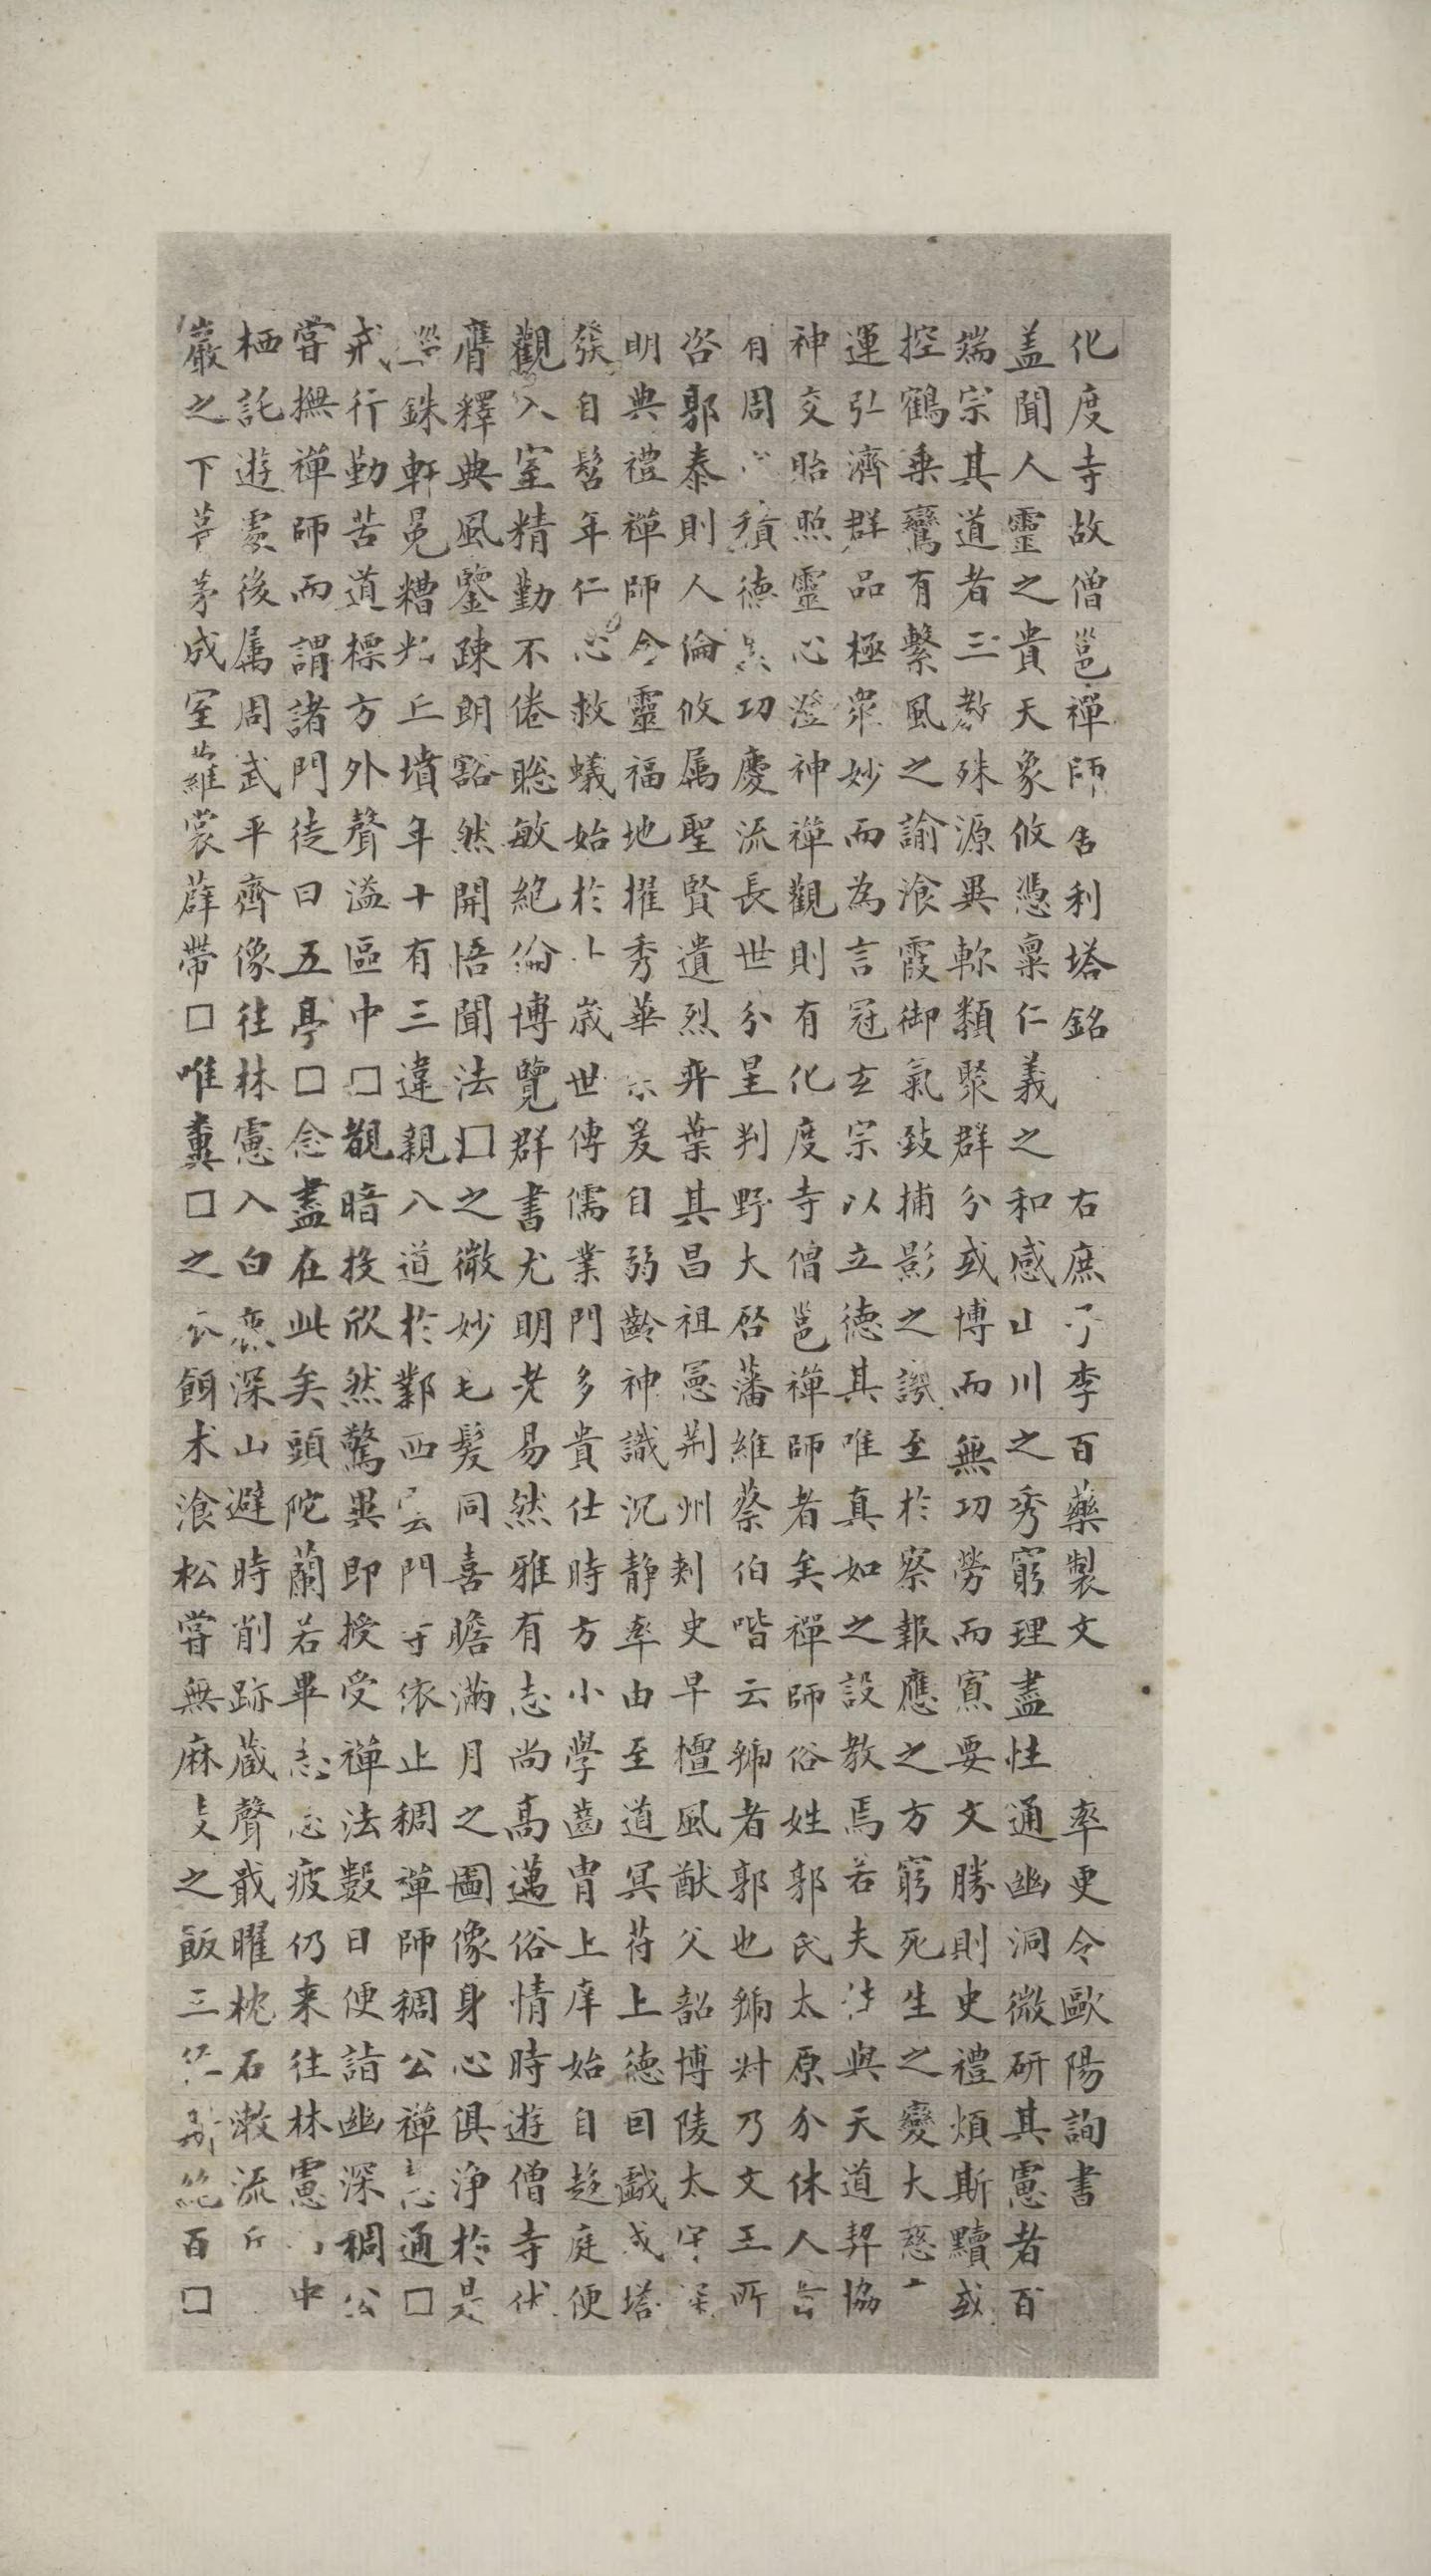 化度寺故僧邕禪師舍利塔銘 右庶子李百藥製文 率更令歐陽詢書
盖聞人靈之貴天象攸憑稟仁義之和感山川之秀窮理盡性通幽洞微研其慮者百
端宗其道者三教殊源異軫類聚群分或博而無功勞而寡要文勝則史禮煩斯黷或
控鶴乗鸞有繫風之諭飡霞御氣致捕影之譏至於察報應之方窮死生之變大慈
運弘濟群品極衆妙而為言冠玄宗以立德其唯真如之設教焉若夫性與天道契協
神交貽照靈心澄神禪觀則有化度寺僧邕禪師者矣禪師俗姓郭氏太原介休人
有周 積德 功慶流長世分星判野大啓藩維蔡伯喈云虢者郭也虢叔乃文王所
咨郭泰則人倫攸属聖賢遺烈弈葉其昌祖憲荆州刾史早擅風猷父韶博陵太守深
明典禮禪師含靈福地擢秀華宗爰自弱齡神識沉静率由至道冥苻上德因戲成塔
發自髫年仁心救蟻始於卝歲世傳儒業門多貴仕時方小學齒胄上庠始自趍庭便
觀入室精勤不倦聡敏絶倫博覽群書尤明老易然雅有志尚高邁俗情時遊僧寺伏
膺釋典風鑒踈朗豁然開悟聞法□之微妙毛髮同喜瞻滿月之圖像身心俱浄於是
錙銖軒冕糟粃丘墳年十有三違親入道於鄴西雲門寺依止稠禪師稠公禪慧通□
戒行勤苦道標方外聲溢區中□覩暗投欣然驚異即授受禪法數日便詣幽深稠公
嘗撫禪師而謂諸門徒曰五亭□念盡在此矣頭陀蘭若畢志忘疲仍来往林慮山中
栖託遊處後属周武平齊像往林慮入白鹿深山避時削跡蔵聲戢曜枕石漱流
巖之下葺茅成室蘿裳薜帶□唯糞□之衣餌术飡松嘗無麻麦之飯三 絶百□